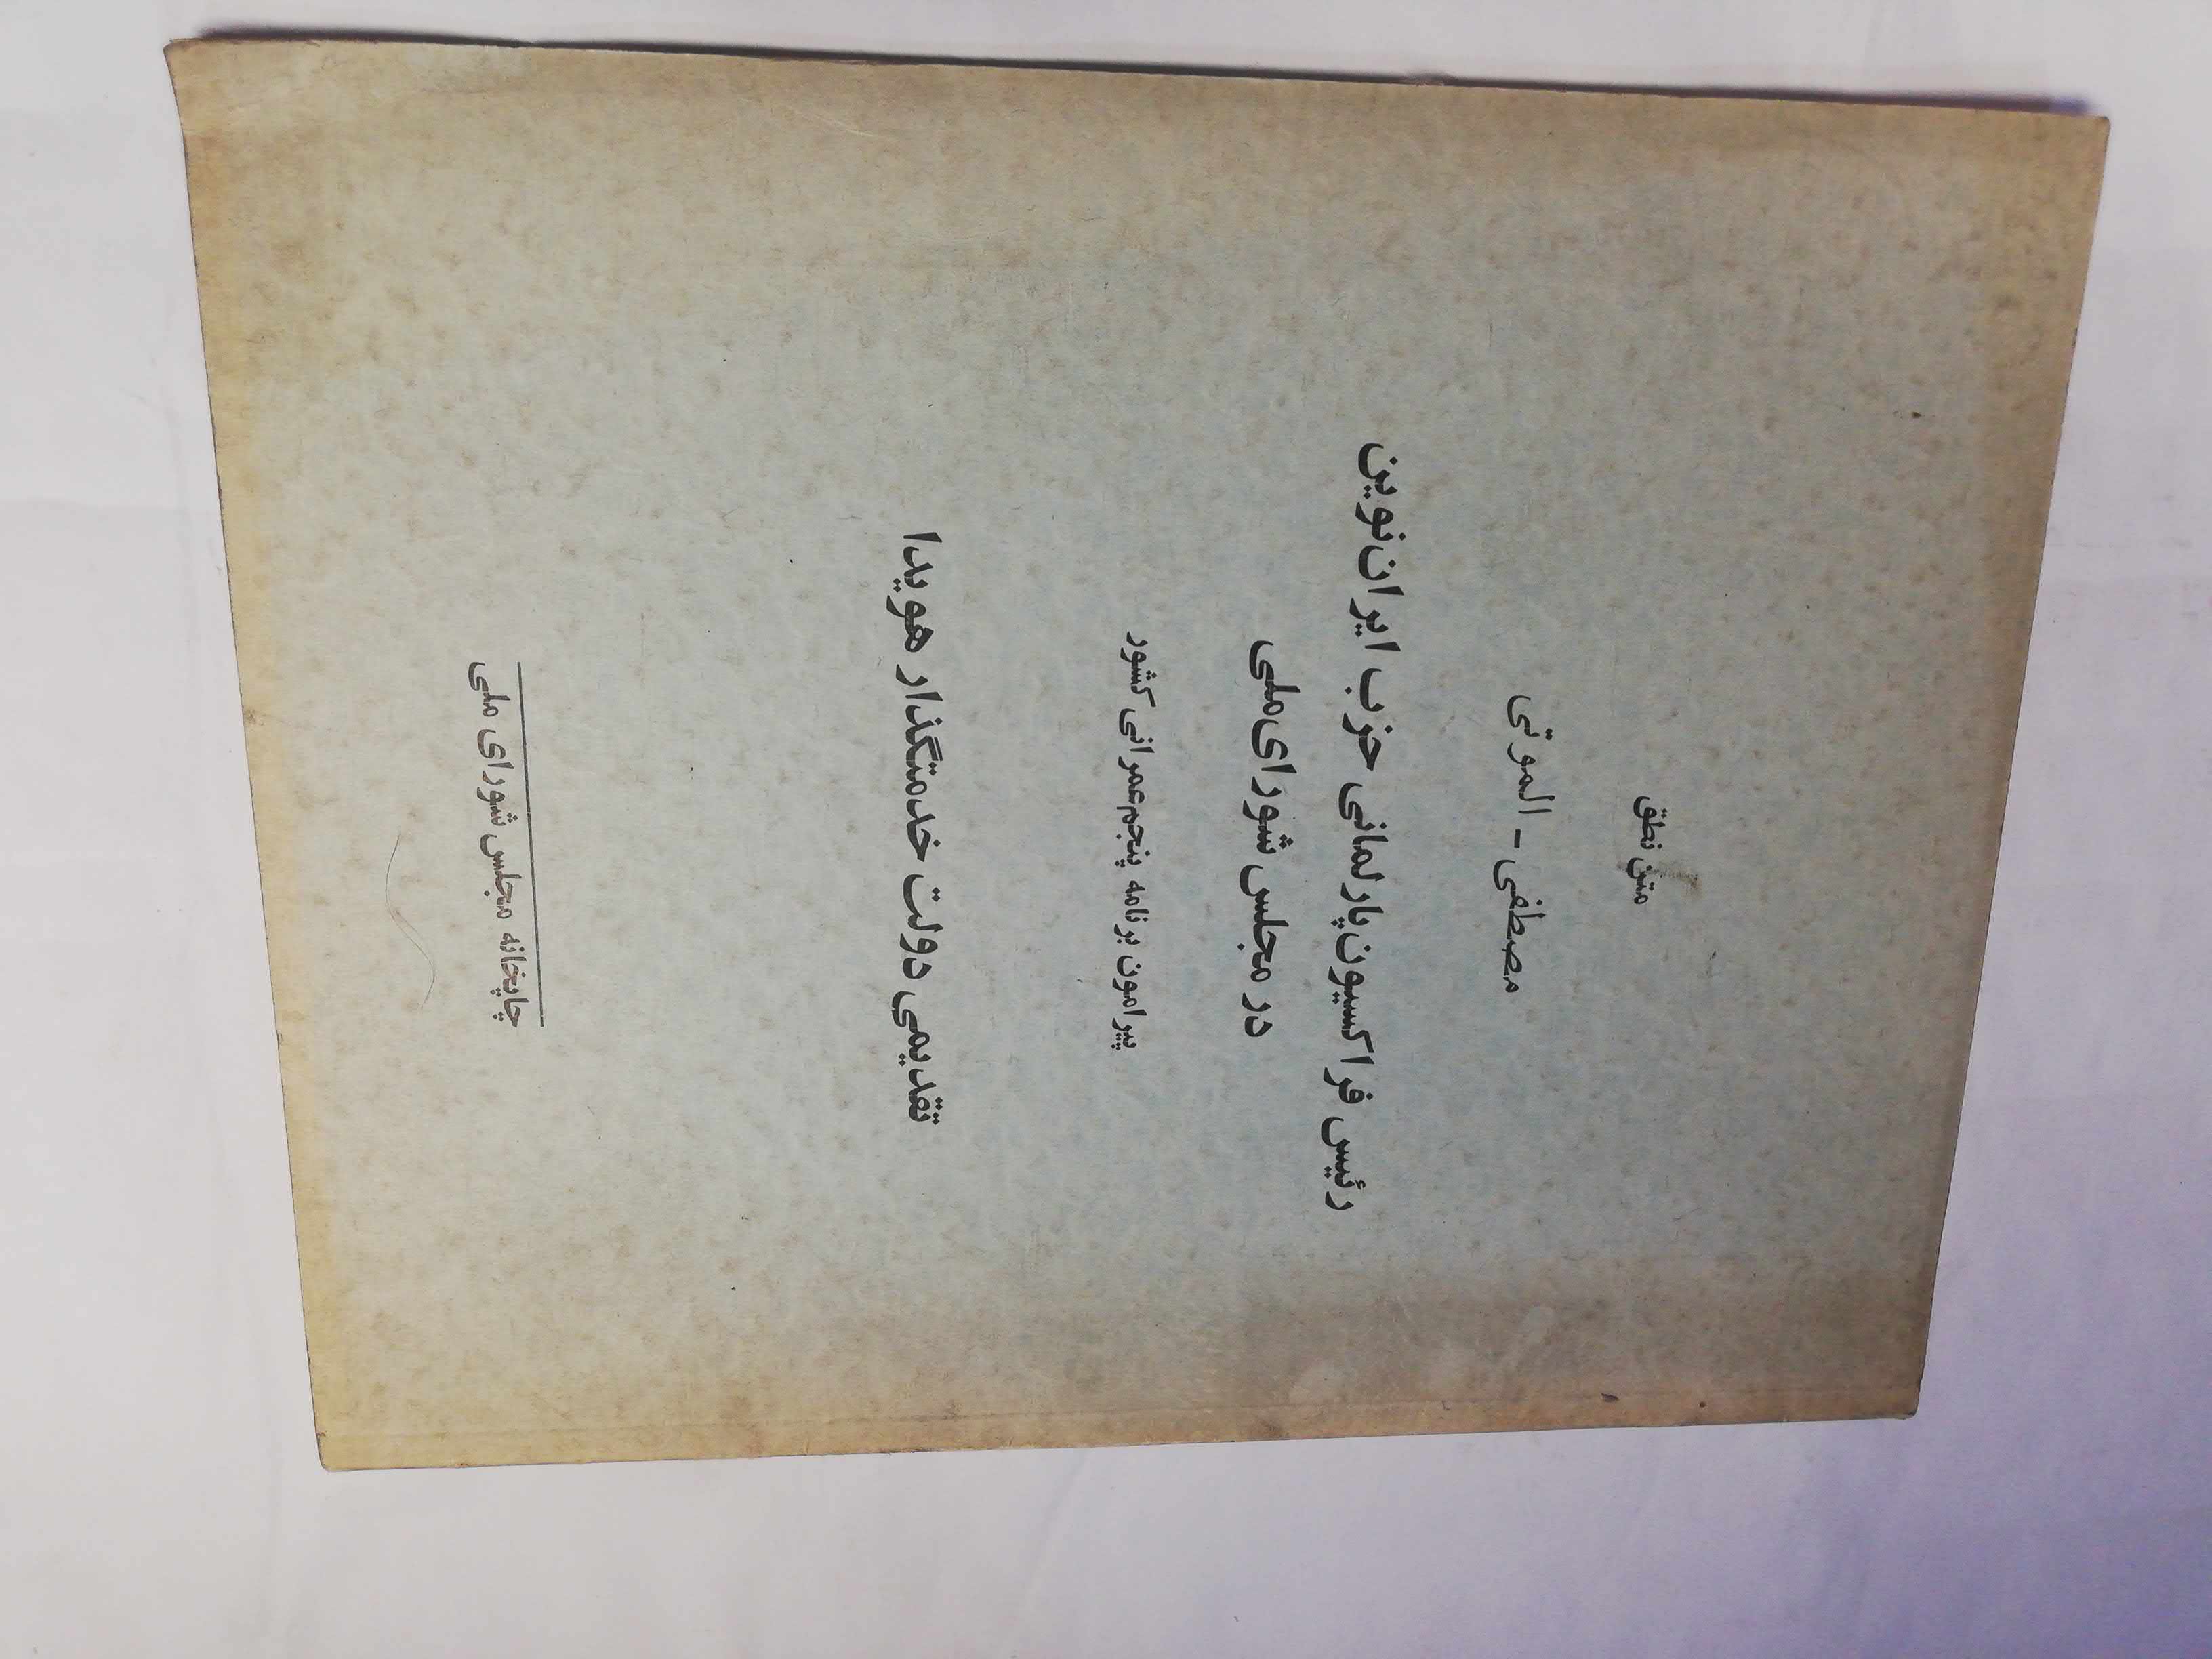 متن نطق
مصطفی - الموتی
رئیس فراکسیون پارلمانی حزب ایران نوین
در مجلس شورای ملی
پیرامون برنامه پنجم عمرانی کشور
تقدیمی دولت خدمتگذار هویدا
چاپخانه مجلس شورای ملی